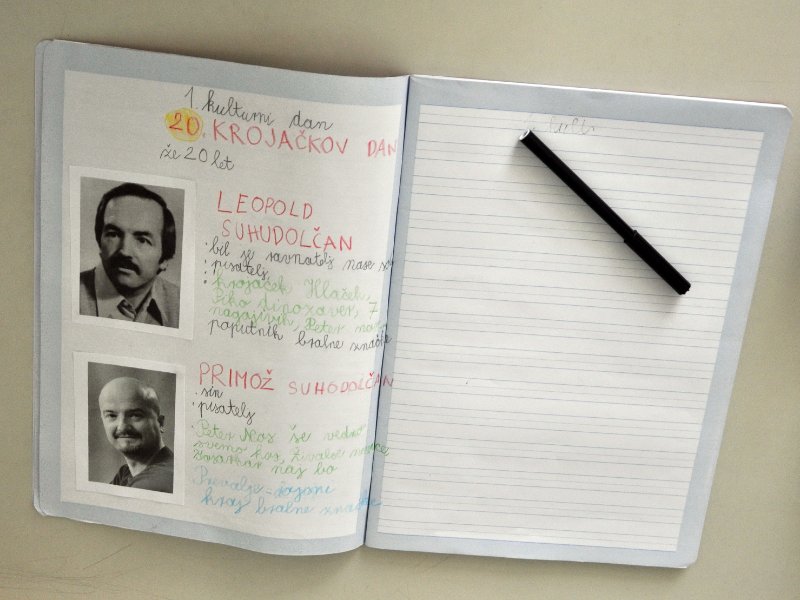 1. kulturni dan
20. KROJAČKOV DAN
že 20 let
LEOPOLD
SUHUDOLČAN
• bil je ravnatelj naše
• pisatelj
• Krojaček Hlaček,
Piko dinozaver, 7
nagajivih, Peter
popotnik bralne značke
PRIMOŽ SUHODOLČAN
• sin
• pisatelj
• Peter Nos je vedno
Košarkar naj bo
Prevalje - rojstni
kraj bralne značke